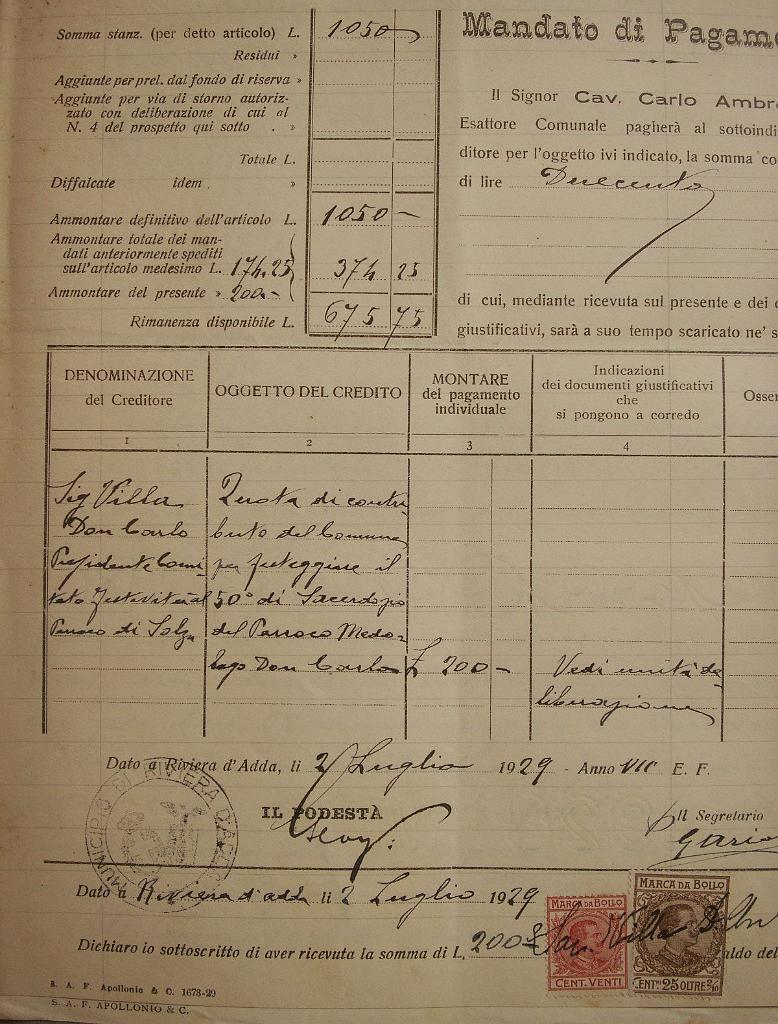 Somma stanz. (per detto articolo) L. 1050
Residui »
Aggiunte per prel. dal fondo di riserva »
Aggiunte per via di storno autoriz-
zato con deliberazione di cui al
N. 4 del prospetto qui sotto . »
Totale L.
Diffalcate idem »
Ammontare definitivo dell'articolo L. 1050 —
Ammontare totale dei man-
dati anteriormente spediti
sull'articolo medesimo L. 174,25
374 25
Ammontare del presente » 200.-
Rimanenza disponibile L. 675 75
Mandato di Pagame
Il Signor Cav. Carlo Ambr
Esattore Comunale pagherà al sottoindi
ditore per l'oggetto ivi indicato, la somma co
di lire Duecento
di cui, mediante ricevuta sul presente e dei d
giustificativi, sarà a suo tempo scaricato ne' s
DENOMINAZIONE
del Creditore
OGGETTO DEL CREDITO
MONTARE
del pagamento
individuale
Indicazioni
dei documenti giustificativi
che
si pongono a corredo
Osser
1 2 3 4
Sig Villa
Don Carlo
Presidente Comi-
tato
Parroco di Solza
Quota di contri-
buto del Comune
per festeggiare il
50° di Sacerdozio
del Parroco Medo-
lago Don Carlo
£ 200 —
Vedi unita de-
liberazione
Dato a Riviera d'Adda, li 2 Luglio 1929 - Anno VII E. F.
MUNICIPIO DI RIVIERA D'ADDA
IL PODESTÀ
Il Segretario
Dato a Riviera d'adda li 2 Luglio 1929
Dichiaro io sottoscritto di aver ricevuta la somma di L. 200 Sac. Villa aldo del
MARCA DA BOLLO
CENT. VENTI
MARCA DA BOLLO
CENTMI 25 OLTRE 2/10
S. A. F. Apollonio & C. 1678-29
S. A. F. APOLLONIO & C.